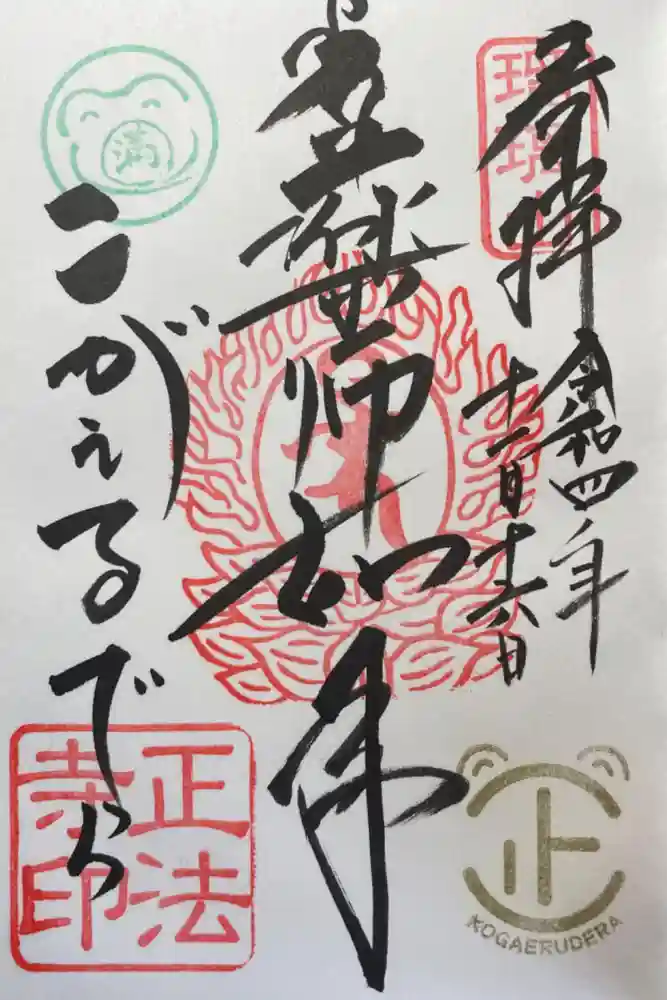 奉拝
瑠璃山
令和四年
十一月十六日
薬師如来
こがえるでら
満
正法
寺印
正
KOGAERUDERA